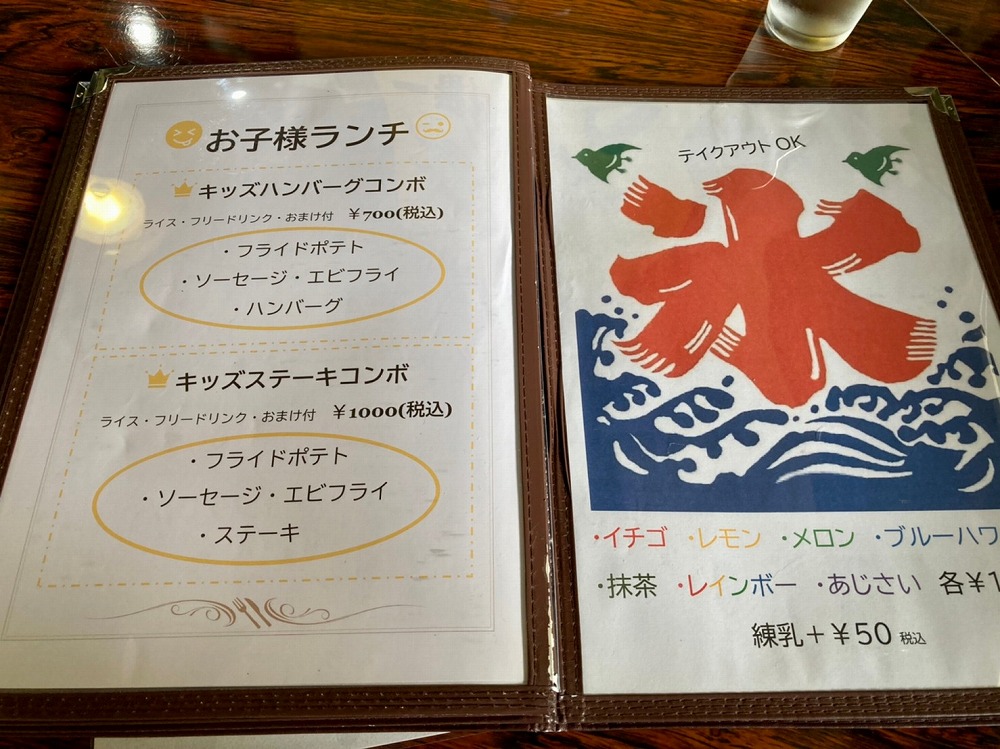 お子様ランチ
キッズハンバーグコンボ
ライス・フリードリンク・おまけ付 ￥700(税込)
・フライドポテト
・ソーセージ・エビフライ
・ハンバーグ
キッズステーキコンボ
ライス・フリードリンク・おまけ付 ￥1000(税込)
・フライドポテト
・ソーセージ・エビフライ
・ステーキ
テイクアウトOK
氷
・イチゴ ・レモン ・メロン ・ブルーハワ
・抹茶 ・レインボー ・あじさい 各￥1
練乳＋￥50 税込